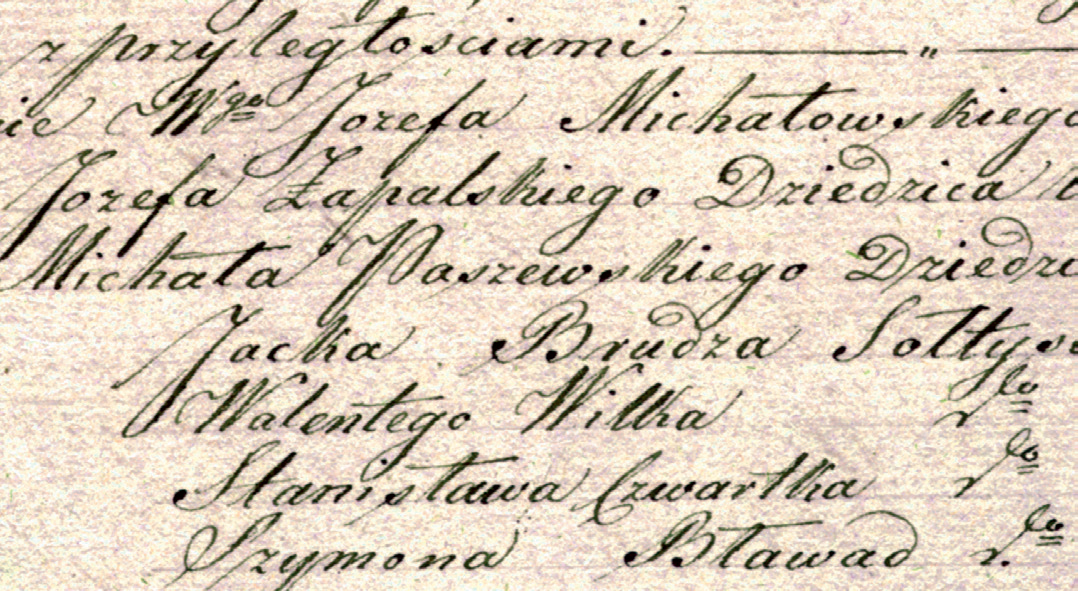 z przyległościami. ———— „ ————
nie Wgo Jozefa Michałowskiego
Jozefa Zapalskiego Dziedzica
Michała Paszewskiego Dziedzi
Jacka Brudza Sołtysa
Walentego Wilka
Stanisława Czwartka
Szymona Bławad